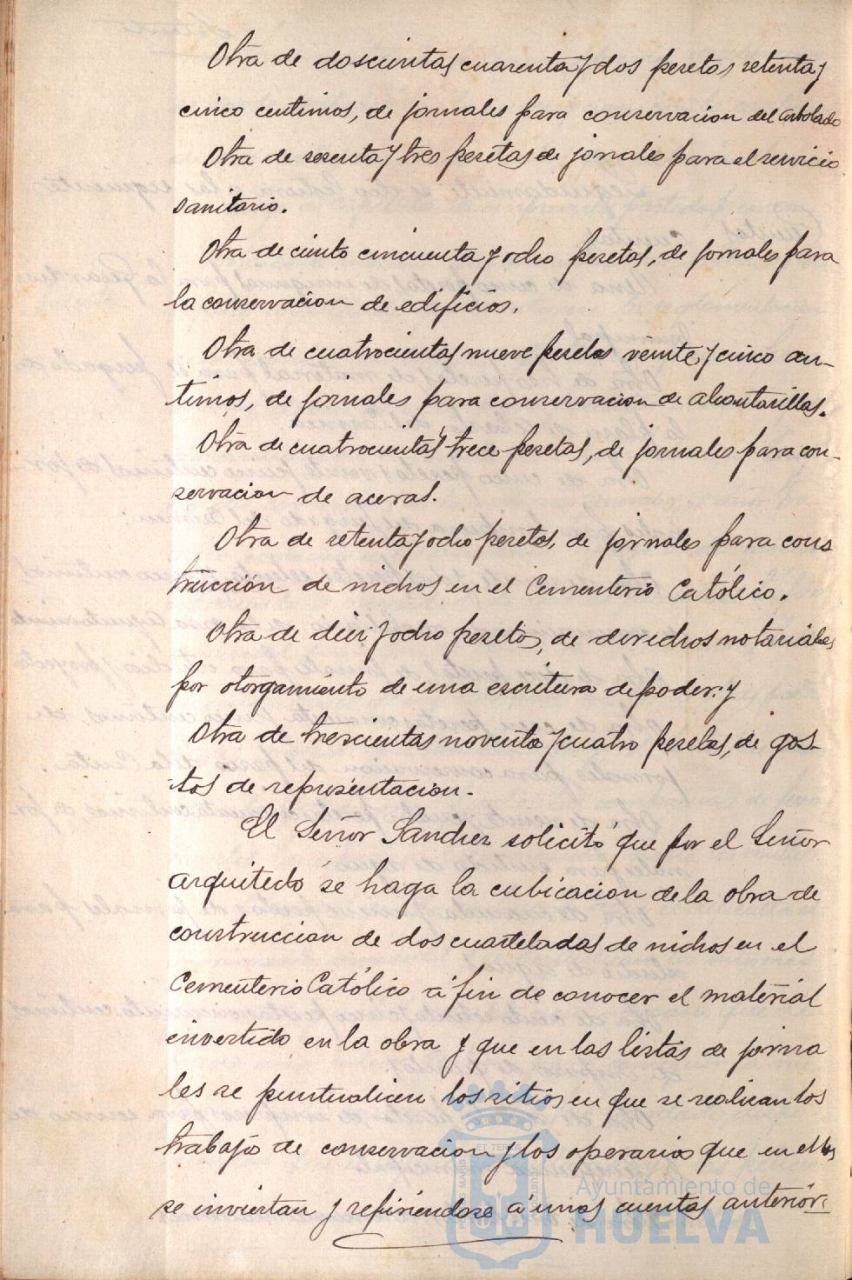 Otra de doscientas cuarenta y dos pesetas setenta y
cinco centimos, de jornales para conservacion del arbolado
Otra de sesenta y tres pesetas de jornales para el servicio
sanitario.
Otra de ciento cincuenta y ocho pesetas, de jornales para
la conservacion de edificios.
Otra de cuatrocientas nueve pesetas veinte y cinco cen-
timos, de jornales para conservacion de alcantarillas.
Otra de cuatrocientas trece pesetas, de jornales para con-
servacion de aceras.
Otra de setenta y ocho pesetas, de jornales para cons
trucción de nichos en el Cementerio Católico.
Otra de diez y ocho pesetas, de derechos notariales
por otorgamiento de una escritura de poder: y
Otra de trescientas noventa y cuatro pesetas, de gas-
tos de representacion.
El Señor Sanchez solicitó que por el Señor
arquitecto se haga la cubicacion de la obra de
construccion de dos cuarteladas de nichos en el
Cementerio Católico á fin de conocer el material
invertido en la obra y que en las listas de jorna
les se puntualicen los sitios en que se realizan los
trabajos de conservacion y los operarios que en ellos
se inviertan y refiriendose á unas cuentas anterior:
Ayuntamiento de
HUELVA